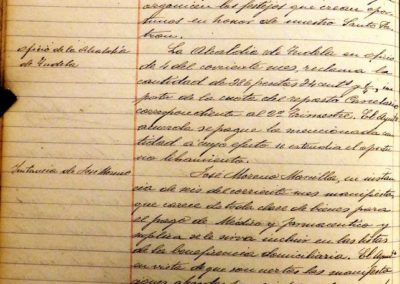 organicen los festejos que crean opor-
tunos en honor de nuestro Santo Pa-
trón.
oficio de la Alcaldía
de Tudela
La Alcaldía de Tudela en oficio
de 4 del corriente mes, reclama la
cantidad de 226 pesetas 24 cent
porte de la cuota del reparto Carcelario
correspondiente al 2º Trimestre. El Ayunt
acuerda se pague la mencionada can-
tidad a cuyo efecto se extenderá el oportu-
no libramiento.
Instancia de José Moreno
José Moreno Mancilla, en instan-
cia de seis del corriente mes manifiesta
que carece de toda clase de bienes para
el pago de Médico y Farmacéutico y
suplica se le sirva incluir en las listas
de la beneficencia domiciliaria. El Ayunt
en vista de que son ciertas las manifesta